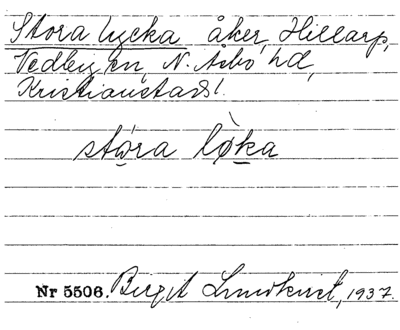 Stora lycka åker, Hillarp,
Vedby sn, N. Åsbo hd,
Kristianstads l.
stóra lø̀ka
Nr 5506. Birgit Lundkvist, 1937.